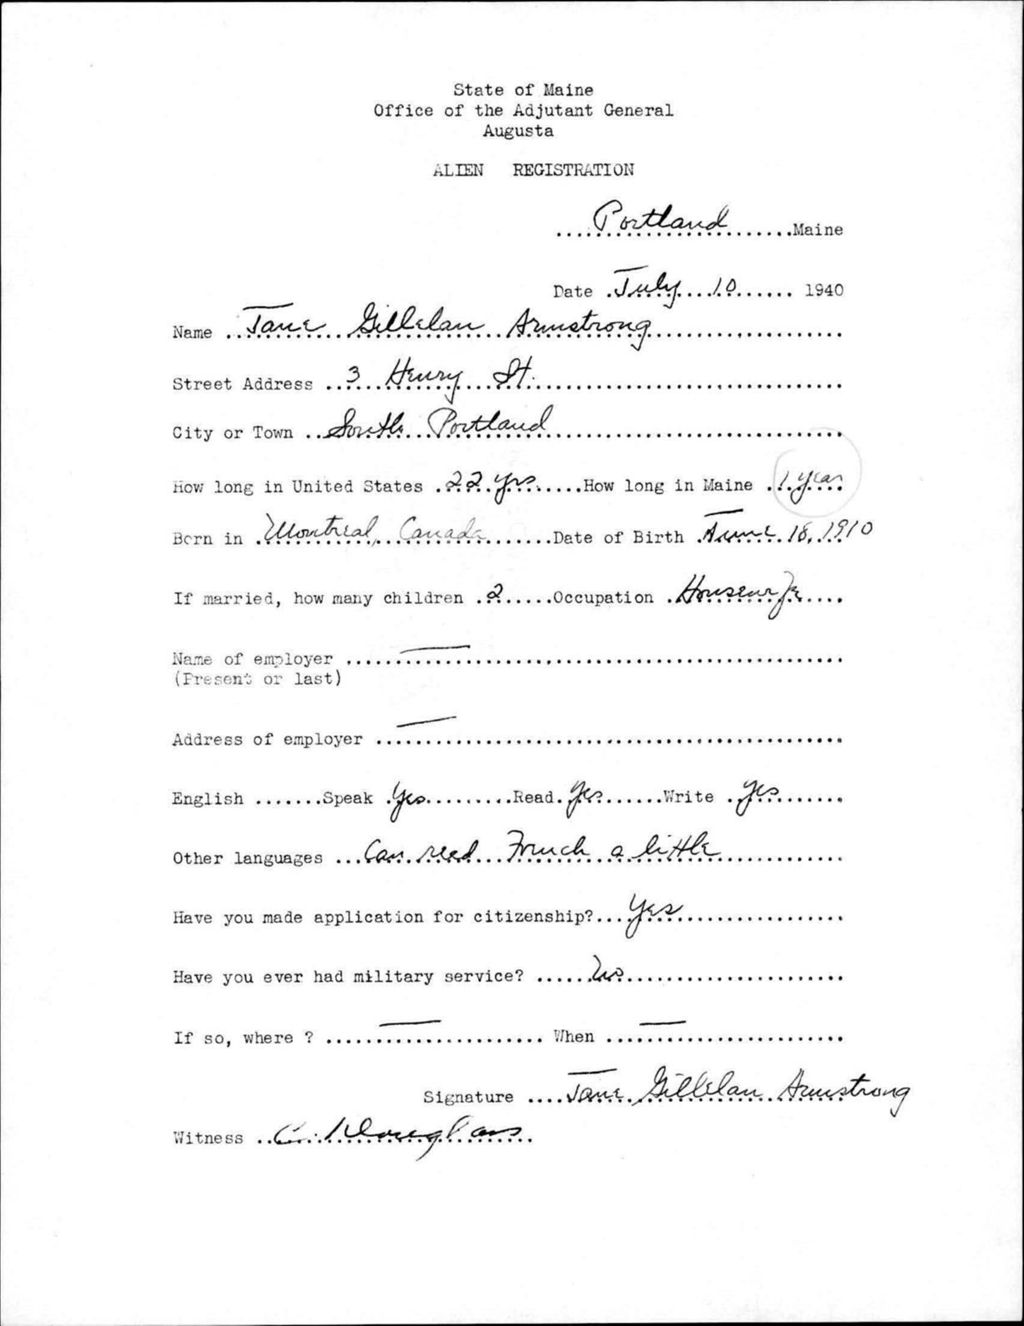 State of Maine
Office of the Adjutant General
Augusta
ALIEN REGISTRATION
....Portland.......Maine
Date .July...10...... 1940
Name ..Jane...Gillelan..Armstrong....................
Street Address ..3...Henry...St...............................
City or Town ..South..Portland....................................
How long in United States .22.yrs......How long in Maine .1.year
Born in .Montreal, Canada........Date of Birth .June.18,.1910
If married, how many children .2.....Occupation .Housewife....
Name of employer ......—..................................
(Present or last)
Address of employer ...—..................................
English .......Speak .Yes.........Read.Yes......Write .Yes.......
Other languages ...Can.read...French..a.little.............
Have you made application for citizenship?...Yes.................
Have you ever had military service? ......No......................
If so, where ? .....—............ When ...—................
Signature ....Jane..Gillelan..Armstrong
Witness ..C...Douglass.